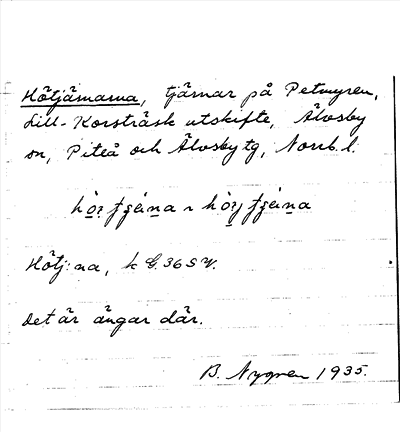 Hötjärnarna, tjärnar på Petmyren,
Lill-Korsträsk utskifte, Älvsby
sn, Piteå och Älvsby tg, Norrb. l.
Hötj:na, k G. 36 S V.
Det är ängar där.
B. Nygren 1935.